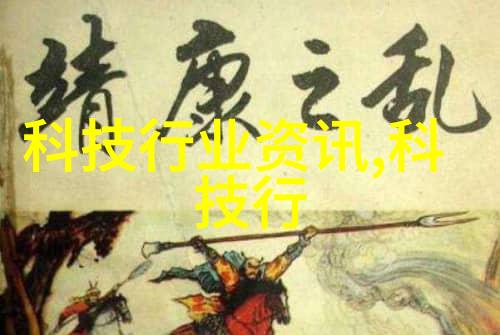 靖康之乱
科技行业资讯,科
技行